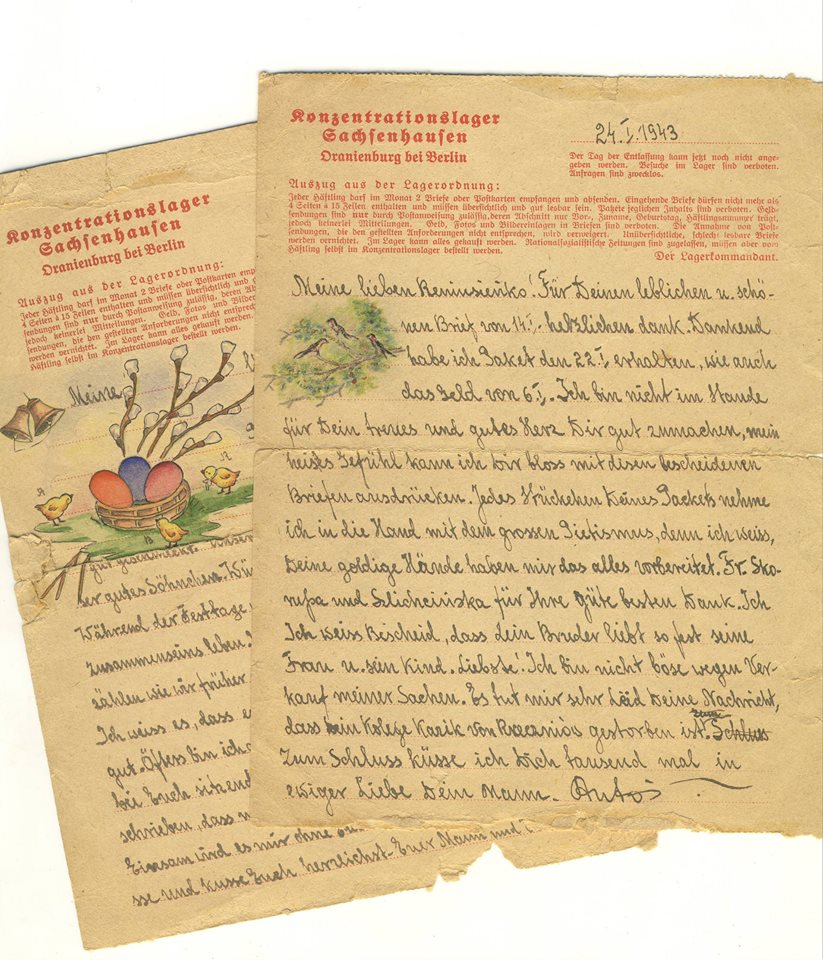 Konzentrationslager
Sachsenhausen
Oranienburg bei Berlin
Auszug aus der Lagerordnung:
Jeder Häftling darf im Monat 2 Briefe oder Postkarten emp
4 Seiten à 15 Zeilen enthalten und müssen übersichtlich und g
sendungen sind nur durch Postanweisung zulässig, deren Ab
jedoch keinerlei Mitteilungen. Geld, Fotos und Bilder
sendungen, die den gestellten Anforderungen nicht entsp
werden vernichtet. Im Lager kann alles gekauft werden.
Häftling selbst im Konzentrationslager bestellt werden.
Meine
gut geschmeckt. Unser
ter gutes Söhnchen. Wü
Während der Festtage
zusammenseins leben.
zählen wie wir früher
Ich weiss es, dass e
gut. Öfters bin ich
bei Euch sitzend
schrieben, dass
Einsam wird es mir ohne
sse und kusse Euch herzlichst - Euer Mann und
Konzentrationslager
Sachsenhausen
Oranienburg bei Berlin
24.I.1943
Der Tag der Entlassung kann jetzt noch nicht ange-
geben werden. Besuche im Lager sind verboten.
Anfragen sind zwecklos.
Auszug aus der Lagerordnung:
Jeder Häftling darf im Monat 2 Briefe oder Postkarten empfangen und absenden. Eingehende Briefe dürfen nicht mehr als
4 Seiten à 15 Zeilen enthalten und müssen übersichtlich und gut lesbar sein. Pakete jeglichen Inhalts sind verboten. Geld-
sendungen sind nur durch Postanweisung zulässig, deren Abschnitt nur Vor-, Zuname, Geburtstag, Häftlingsnummer trägt,
jedoch keinerlei Mitteilungen. Geld, Fotos und Bildereinlagen in Briefen sind verboten. Die Annahme von Post-
sendungen, die den gestellten Anforderungen nicht entsprechen, wird verweigert. Unübersichtliche, schlecht lesbare Briefe
werden vernichtet. Im Lager kann alles gekauft werden. Nationalsozialistische Zeitungen sind zugelassen, müssen aber vom
Häftling selbst im Konzentrationslager bestellt werden.
Der Lagerkommandant.
Meine lieben Reniusieńko! Für Deinen leblichen u. schö-
nen Brief von 14.I. hetzlichen dank. Dankend
habe ich Paket den 22.I. erhalten, wie auch
das Geld von 6.I. Ich bin nicht im Stande
für Dein treues und gutes Herz Dir gut zumachen, mein
heises Gefühl kann ich Dir bloss mit disen bescheidenen
Briefen ausdrücken. Jedes Stückchen Deines Packets nehme
ich in die Hand mit dem grossen Pietismus, denn ich weiss,
Deine goldige Hände haben mir das alles vorbereitet. Fr. Sko-
und für Ihre Güte besten Dank. Ich
Ich weiss Bescheid, dass dein Bruder liebt so fest seine
Frau u. sein Kind. Liebste! Ich bin nicht böse wegen Ver-
kauf meiner Sachen. Es tut mir sehr Leid Deine Nachricht,
dass mein Kolege Kazik von gestorben ist. Schluss
Zum Schluss küsse ich Dich tausend mal in
ewiger Liebe Dein Mann - Antoś